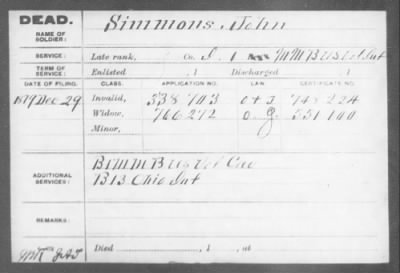 DEAD.
NAME OF SOLDIER: Simmons, John
SERVICE: Late rank, Co. I, 1 M M Brig Vol. Inf
TERM OF SERVICE: Enlisted , 1 Discharged , 1
DATE OF FILING. CLASS. APPLICATION NO. LAW. CERTIFICATE NO.
1879 Dec 29 Invalid, 338 703 748 224
Widow, 766 272 551 100
Minor,
ADDITIONAL SERVICES: B 1 M M Brig Vol Cav
B 13 Ohio Inf
REMARKS:
Died , 1 , at